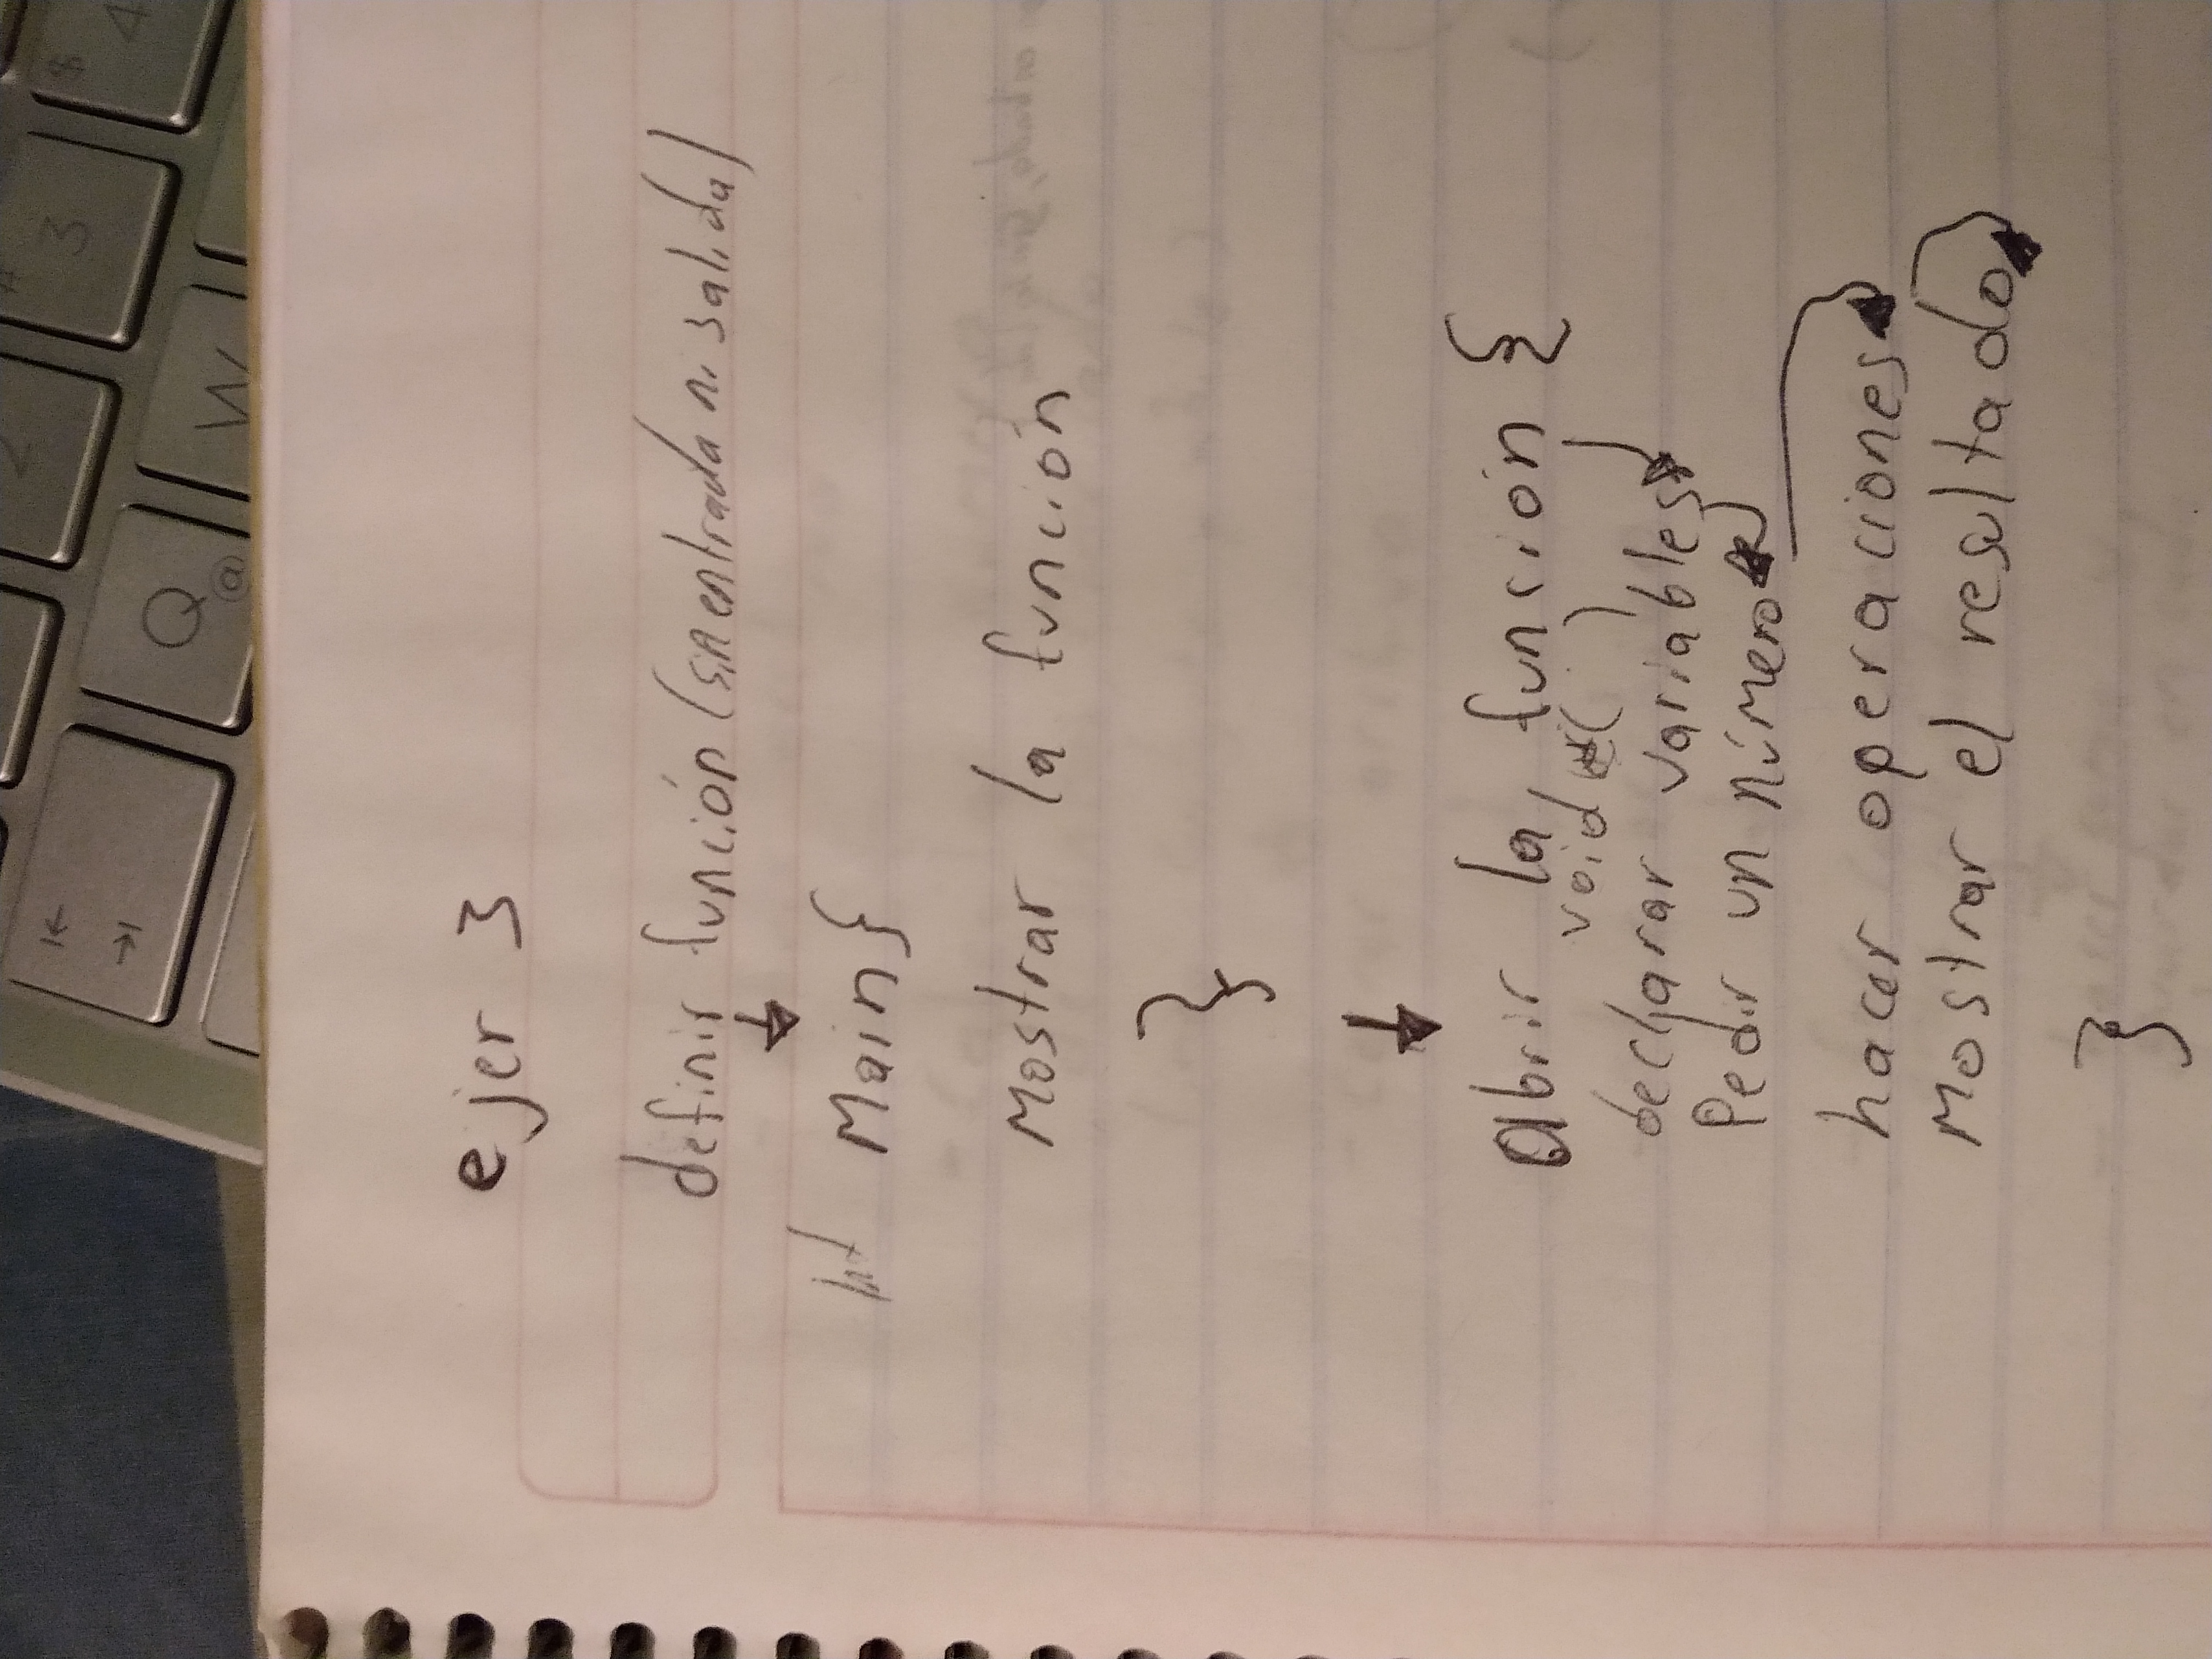 2
#
3
$
4
Q
@
W
ejer 3
definir función (sin entrada ni salida)
int Main{
Mostrar la función
}
abrir la función {
void ( )
declarar variables
Pedir un número
hacer operaciones
Mostrar el resultado
}